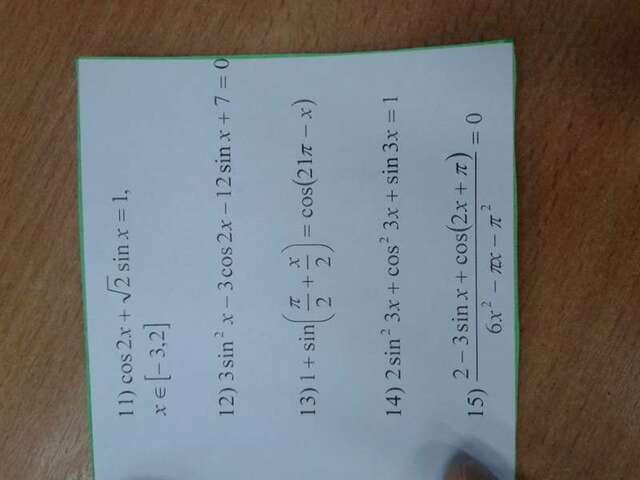 11) cos 2x + √2 sin x = 1,
x ∈ [− 3,2]
12) 3 sin² x − 3 cos 2x − 12 sin x + 7 = 0
13) 1 + sin(π/2 + x/2) = cos(21π − x)
14) 2 sin² 3x + cos² 3x + sin 3x = 1
15) (2 − 3 sin x + cos(2x + π))/(6x² − πx − π²) = 0